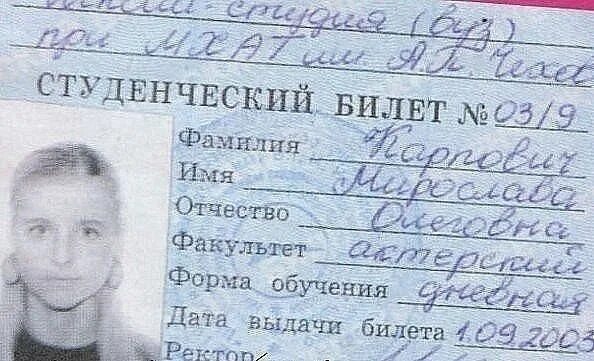 студия (вуз)
при МХАТ им. А.П. Чехов
СТУДЕНЧЕСКИЙ БИЛЕТ № 03/9
Фамилия Карпович
Имя Мирослава
Отчество Олеговна
Факультет актерский
Форма обучения дневная
Дата выдачи билета 1.09.2003
Ректор